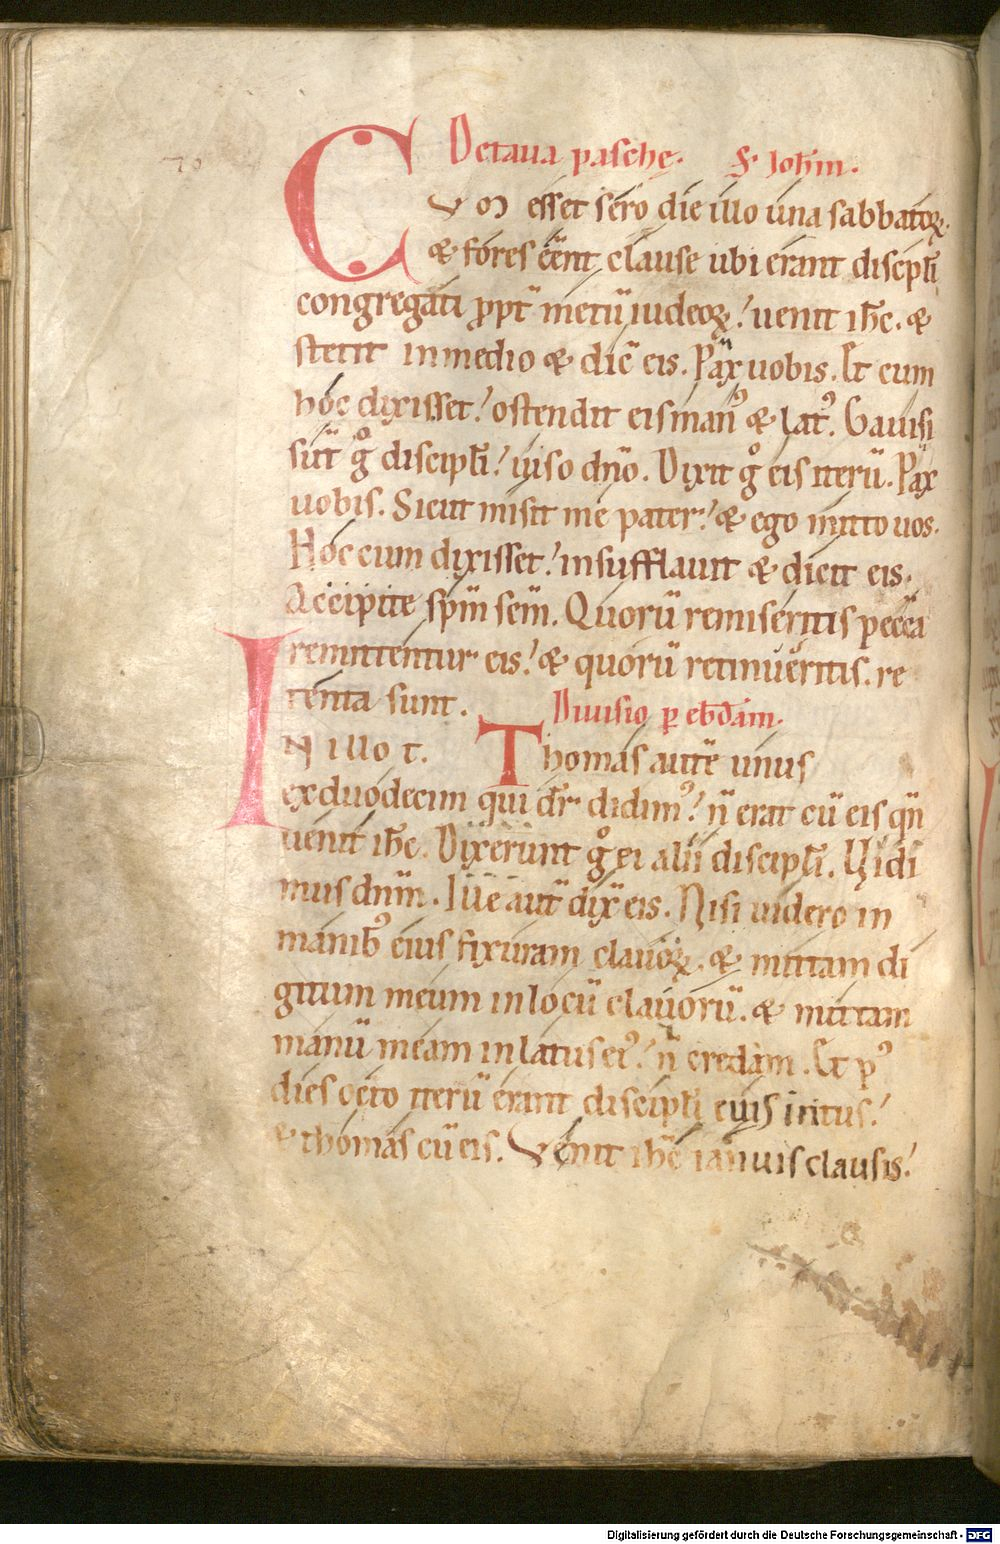 70
Octaua pasche. S. Ioh̄m.
CVm esset sero die illo una sabbatoꝝ.
& fores eēnt clause ubi erant discipĺi
congregati ꝓpt̄ metū iudeoꝝ! uenit ih̄c. &
stetit in medio & dic̄ eis. Pax uobis. Et cum
hoc dixisset! ostendit eis man᷒ & lat᷒. Gauisi
sūt gͦ discipĺi! uiso dn̄o. Dixit gͦ eis iterū. Pax
uobis. Sicut misit me pater! & ego mitto uos.
Hoc cum dixisset! insufflauit & dicit eis.
Accipite sp̄m sc̄m. Quorū remiseritis pecc̄a
remittentur eis! & quorū retinueritis. re
tenta sunt. Diuisio p̱ ebd̄am.
IN illo t. Thomas autē unus
ex duodecim qui dr̄ didim᷒! n̄ erat cū eis qn̄
uenit ih̄c. Dixerunt gͦ ei alii discipĺi. Uidi
mus dn̄m. Ille aut̄ dix̄ eis. Nisi uidero in
manib᷒ eius fixuram clauoꝝ. & mittam di
gitum meum in locū clauorū. & mittam
manū meam in latus ei᷒! n̄ credam. Et p᷒
dies octo iterū erant discipĺi eius intus!
& thomas cū eis. Venit ih̄c ianuis clausis!
Digitalisierung gefördert durch die Deutsche Forschungsgemeinschaft - DFG